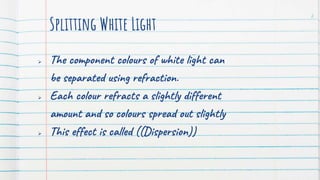 Splitting White Light
➢ The component colours of white light can
be separated using refraction.
➢ Each colour refracts a slightly different
amount and so colours spread out slightly
➢ This effect is called ((Dispersion))